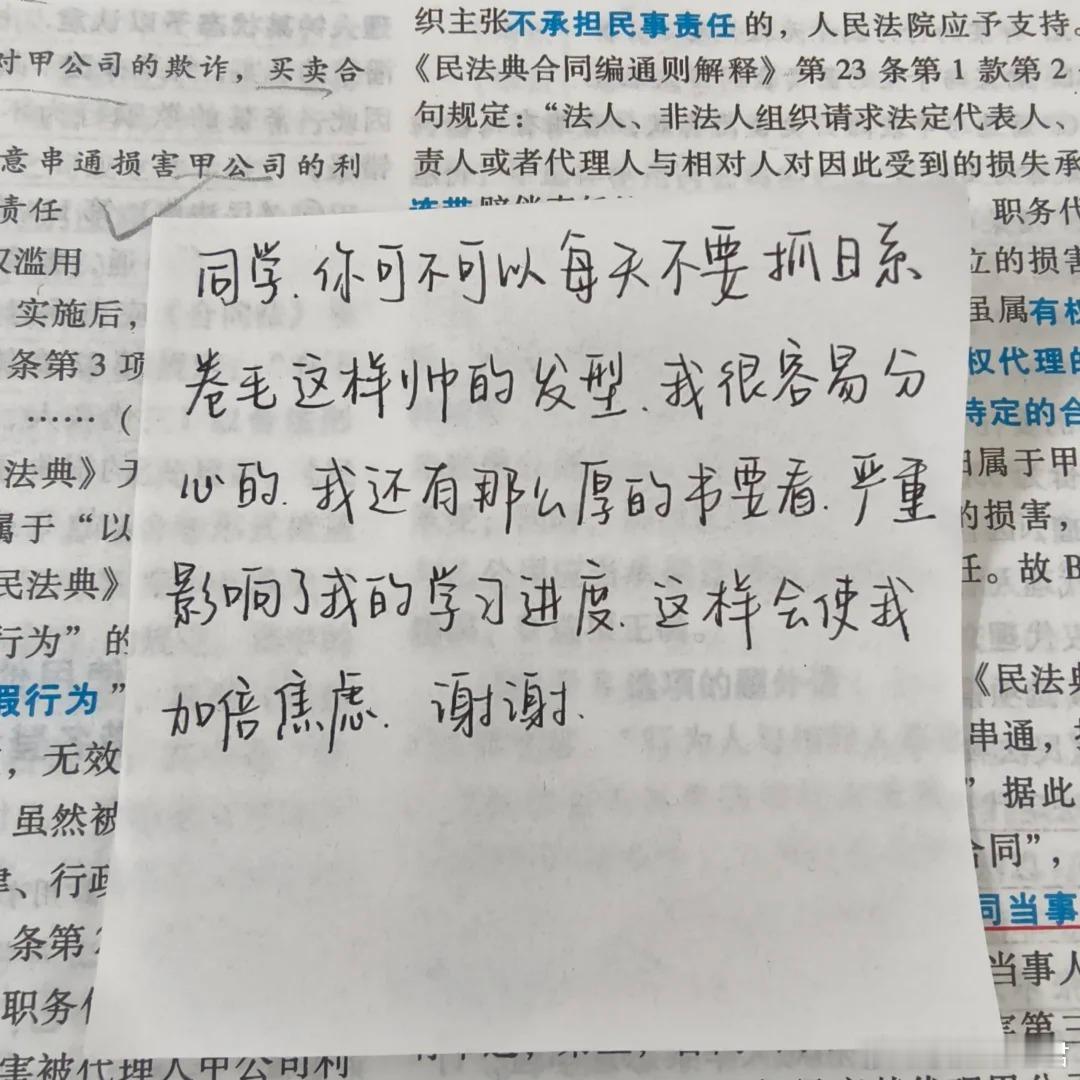 织主张不承担民事责任的，人民法院应予支持。
对甲公司的欺诈，买卖合
《民法典合同编通则解释》第23条第1款第2
句规定：“法人、非法人组织请求法定代表人、
意串通损害甲公司的利
责人或者代理人与相对人对因此受到的损失承
责任
连带赔偿责任
职务代
权滥用
立的损害
实施后，
虽属有权
条第3项
权代理的
……（
特定的合
法典》无
属于甲
属于“以
的损害，
民法典》
任。故B
行为”的
假行为”
《民法典
，无效
串通，
虽然被
”据此
律、行政
合同”，
条第2
同当事
当事人
职务代
害被代理人甲公司利
同学．你可不可以每天不要抓日系
卷毛这样帅的发型．我很容易分
心的．我还有那么厚的书要看．严重
影响了我的学习进度．这样会使我
加倍焦虑．谢谢．